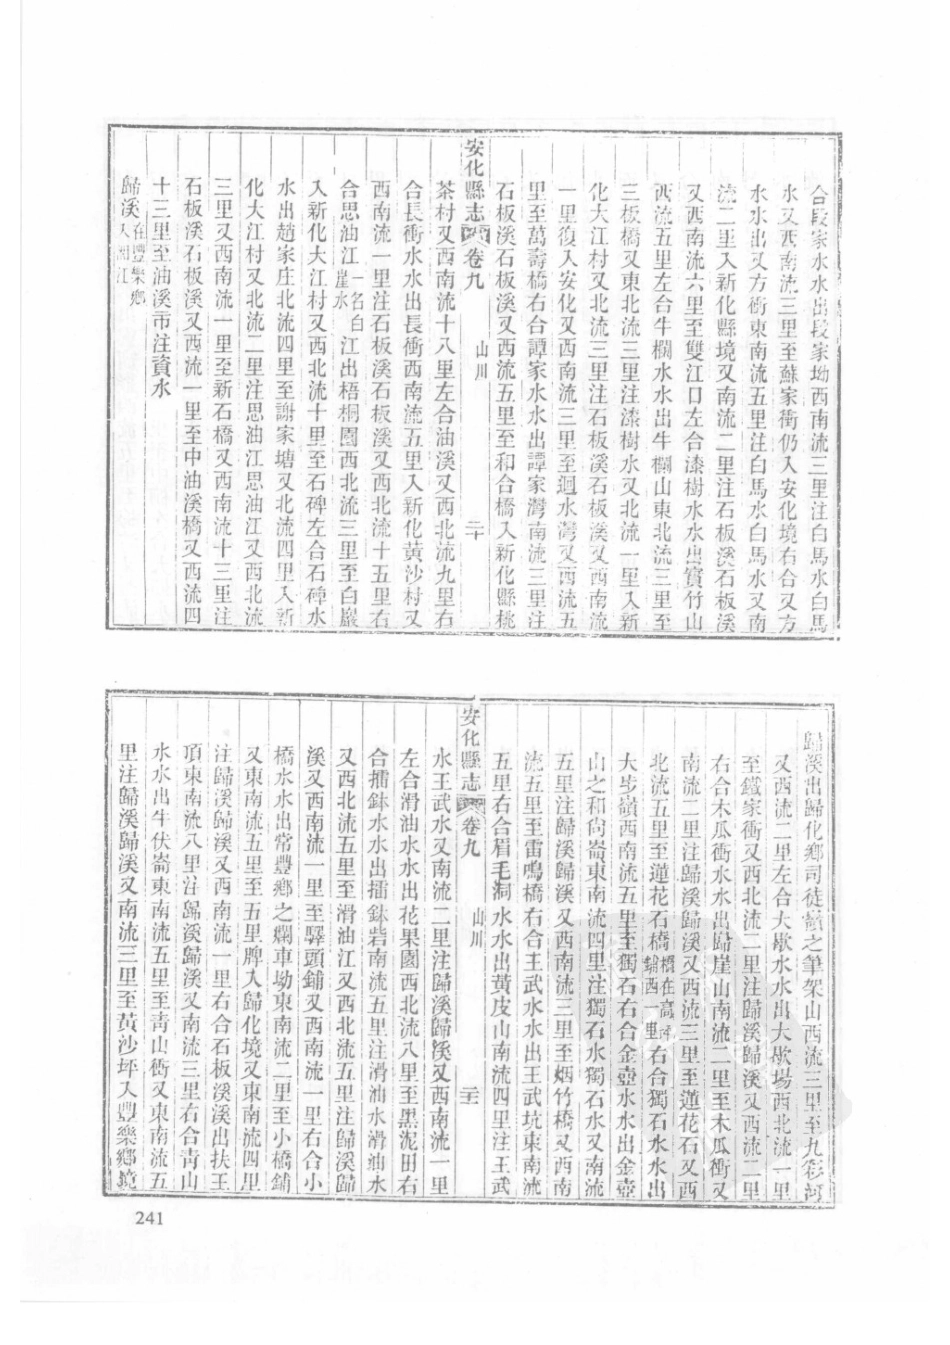 合段家水水出段家坳西南流三里注白馬水白馬
水又西南流三里至蘇家衝仍入安化境右合又方
水水出又方衝東南流五里注白馬水白馬水又南
流二里入新化縣境又南流二里注石板溪石板溪
又西南流六里至雙江口左合漆樹水水出賓竹山
西流五里左合牛欄水水出牛欄山東北流三里至
三板橋又東北流三里注漆樹水又北流一里入新
化大江村又北流三里注石板溪石板溪又西南流
一里復入安化又西南流三里至迴水灣又西流五
里至萬壽橋右合譚家水水出譚家灣南流三里注
石板溪石板溪又西流五里至和合橋入新化縣桃
安化縣志 卷九 山川 二十
茶村又西南流十八里左合油溪又西北流九里右
合長衝水水出長衝西南流五里入新化黃沙村又
西南流一里注石板溪石板溪又西北流十五里右
合思油江一名白崖水江出梧桐園西北流三里至白巖
入新化大江村又西北流十里至石碑左合石硾水
水出趙家庄北流四里至謝家塘又北流四里入新
化大江村又北流二里注思油江思油江又西北流
三里又西南流一里至新石橋又西南流十三里注
石板溪石板溪又西流一里至中油溪橋又西流四
十三里至油溪市注資水
歸溪在豐樂鄉入湘江
歸溪出歸化鄉司徒嶺之筆架山西流三里至九彩河
又西流二里左合大歇水水出大歇場西北流一里
至鐵家衝又西北流二里注歸溪歸溪又西流二里
右合木瓜衝水水出歸崖山南流二里至木瓜衝又
南流二里注歸溪歸溪又西流三里至蓮花石又西
北流五里至蓮花石橋橋在高 鋪西一里右合獨石水水出
大步嶺西南流五里至獨石右合金壺水水出金壺
山之和尙崙東南流四里注獨石水獨石水又南流
五里注歸溪歸溪又西南流三里至烟竹橋又西南
流五里至雷鳴橋右合王武水水出王武坑東南流
五里右合眉毛洞水水出黃皮山南流四里注王武
安化縣志 卷九 山川 二十一
水王武水又南流二里注歸溪歸溪又西南流一里
左合滑油水水出花果園西北流八里至黑泥田右
合擂鉢水水出擂鉢砦南流五里注滑油水滑油水
又西北流五里至滑油江又西北流五里注歸溪歸
溪又西南流一里至驛頭鋪又西南流一里右合小
橋水水出常豐鄉之爛車坳東南流二里至小橋鋪
又東南流五里至五里牌入歸化境又東南流四里
注歸溪歸溪又西南流一里右合石板溪溪出扶王
頂東南流八里注歸溪歸溪又南流三里右合青山
水水出牛伏崙東南流五里至靑山衝又東南流五
里注歸溪歸溪又南流三里至黃沙坪入豐樂鄉境
241